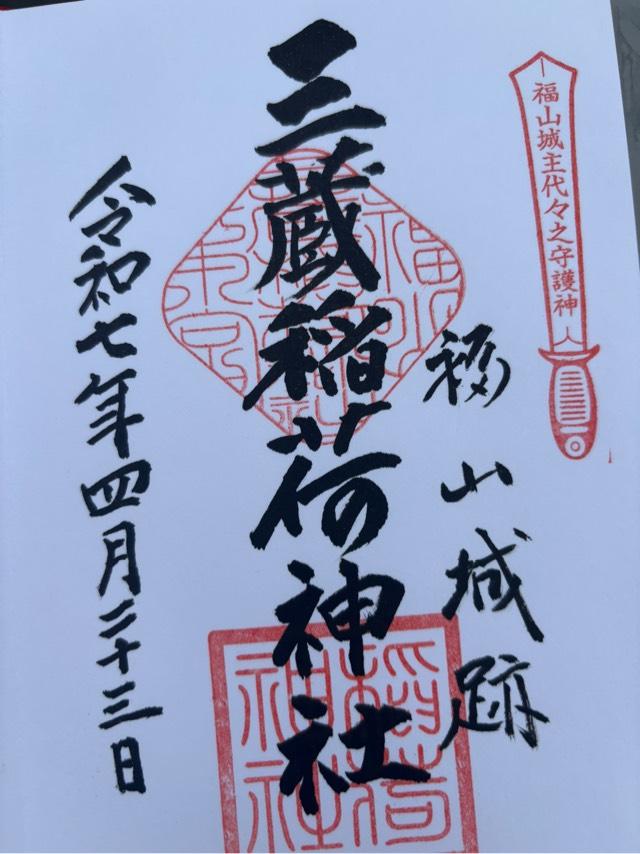 福山城主代々之守護神
福山城跡
三蔵稲荷神社
令和七年四月二十三日
稲荷
神社